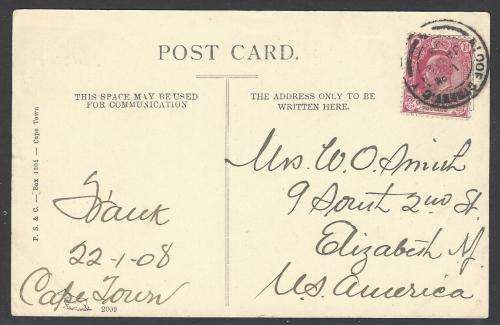 POST CARD.
THIS SPACE MAY BE USED
FOR COMMUNICATION
THE ADDRESS ONLY TO BE
WRITTEN HERE.
P. S. & C. — Box 1094 — Cape Town
Mrs. W. O. Smith
9 South 2nd St.
Elizabeth NJ.
U.S. America
Hauk
22-1-08
Cape Town
2009